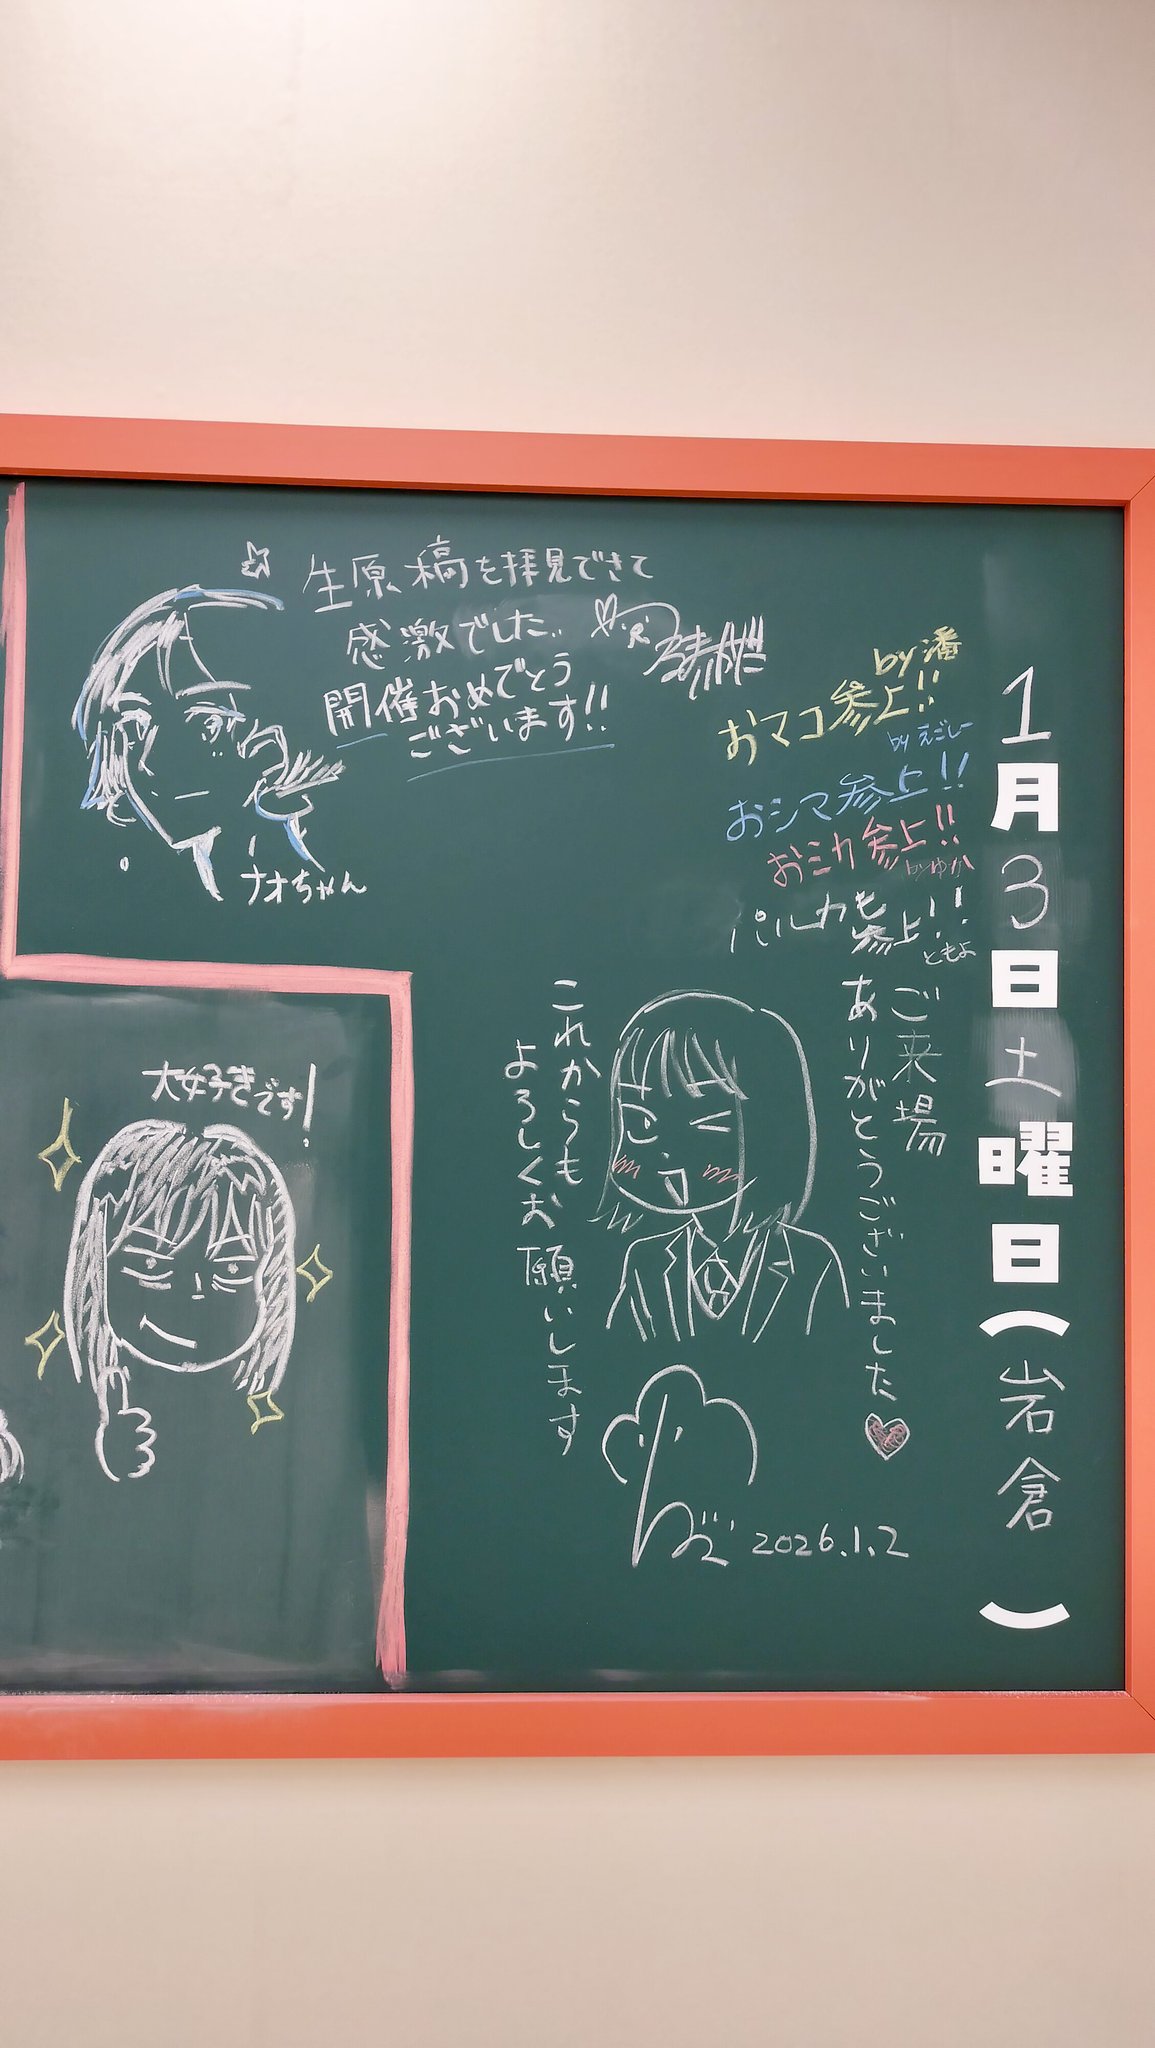 1月3日土曜日(岩倉 )
生原稿を拝見できて
感激でした。
開催おめでとう
ございます!!
ナオちゃん
by 潘
おマコ参上!!
by えごしー
おシマ参上!!
おミカ参上!!
byゆか
パルカも
参上!!
ともよ
ご来場
ありがとうございました
これからも
よろしくお願いします
2026.1.2
大好きです!